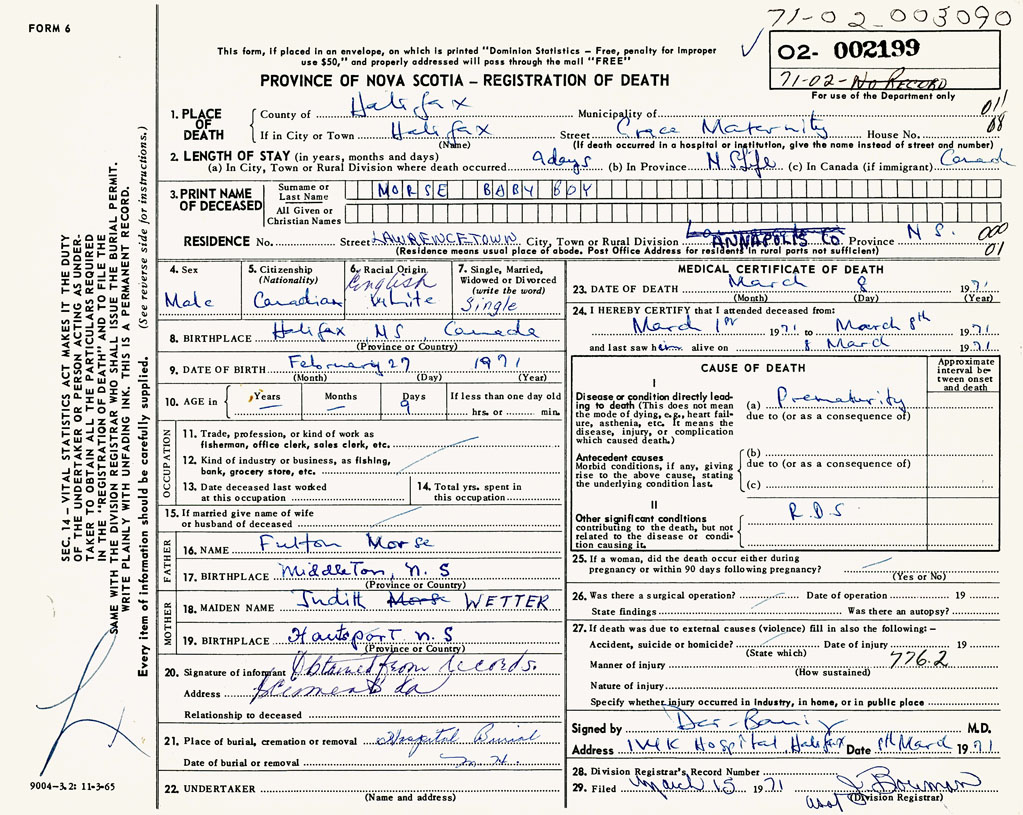 71-02-003090
FORM 6
This form, if placed in an envelope, on which is printed "Dominion Statistics – Free, penalty for improper
use $50," and properly addressed will pass through the mail "FREE"
02- 002199
71-02-No RECORD
For use of the Department only
PROVINCE OF NOVA SCOTIA – REGISTRATION OF DEATH
SEC. 14 – VITAL STATISTICS ACT MAKES IT THE DUTY
OF THE UNDERTAKER OR PERSON ACTING AS UNDER-
TAKER TO OBTAIN ALL THE PARTICULARS REQUIRED
IN THE "REGISTRATION OF DEATH" AND TO FILE THE
SAME WITH THE DIVISION REGISTRAR WHO SHALL ISSUE THE BURIAL PERMIT.
WRITE PLAINLY WITH UNFADING INK. THIS IS A PERMANENT RECORD.
Every item of information should be carefully supplied. (See reverse side for instructions.)
1. PLACE OF DEATH
County of Halifax Municipality of 011
If in City or Town Halifax Street Grace Maternity House No. 08
(Name) (If death occurred in a hospital or institution, give the name instead of street and number)
2. LENGTH OF STAY (in years, months and days)
(a) In City, Town or Rural Division where death occurred 9 days (b) In Province N S Life (c) In Canada (if immigrant) Canad
3. PRINT NAME OF DECEASED
Surname or Last Name MORSE BABY BOY
All Given or Christian Names
RESIDENCE No. Street LAWRENCETOWN City, Town or Rural Division ANNAPOLIS CO. Province N S. 000
(Residence means usual place of abode. Post Office Address for residents in rural parts not sufficient) 01
4. Sex
Male
5. Citizenship
(Nationality)
Canadian
6. Racial Origin
English
White
7. Single, Married,
Widowed or Divorced
(write the word)
Single
8. BIRTHPLACE Halifax N.S. Canada
(Province or Country)
9. DATE OF BIRTH February 27 1971
(Month) (Day) (Year)
10. AGE in Years – Months – Days 9 If less than one day old
hrs. or min.
OCCUPATION
11. Trade, profession, or kind of work as
fisherman, office clerk, sales clerk, etc.
12. Kind of industry or business, as fishing,
bank, grocery store, etc.
13. Date deceased last worked
at this occupation
14. Total yrs. spent in
this occupation
15. If married give name of wife
or husband of deceased
FATHER
16. NAME Fulton Morse
17. BIRTHPLACE Middleton, N.S
(Province or Country)
MOTHER
18. MAIDEN NAME Judith Morse WETTER
19. BIRTHPLACE Hantsport N.S
(Province or Country)
20. Signature of informant Obtained from records.
Address
Relationship to deceased
21. Place of burial, cremation or removal Hospital Burial
Date of burial or removal
22. UNDERTAKER
(Name and address)
9004-3.2: 11-3-65
MEDICAL CERTIFICATE OF DEATH
23. DATE OF DEATH March 8 1971
(Month) (Day) (Year)
24. I HEREBY CERTIFY that I attended deceased from:
March 1st 1971 to March 8th 1971
and last saw him alive on 8 March 1971
CAUSE OF DEATH
Approximate
interval be-
tween onset
and death
I
Disease or condition directly lead-
ing to death (This does not mean
the mode of dying, e.g., heart fail-
ure, asthenia, etc. It means the
disease, injury, or complication
which caused death.)
(a) Prematurity
due to (or as a consequence of)
Antecedent causes
Morbid conditions, if any, giving
rise to the above cause, stating
the underlying condition last.
(b)
due to (or as a consequence of)
(c)
II
Other significant conditions
contributing to the death, but not
related to the disease or condi-
tion causing it.
R.D.S
25. If a woman, did the death occur either during
pregnancy or within 90 days following pregnancy?
(Yes or No)
26. Was there a surgical operation? Date of operation 19
State findings Was there an autopsy?
27. If death was due to external causes (violence) fill in also the following: –
Accident, suicide or homicide? Date of injury 19
(State which) 776.2
Manner of injury
(How sustained)
Nature of injury
Specify whether injury occurred in industry, in home, or in public place
Signed by M.D.
Address IWK Hospital, Halifax Date 8th March 1971
28. Division Registrar's Record Number
29. Filed March 15 1971 J Bowman
(Division Registrar)